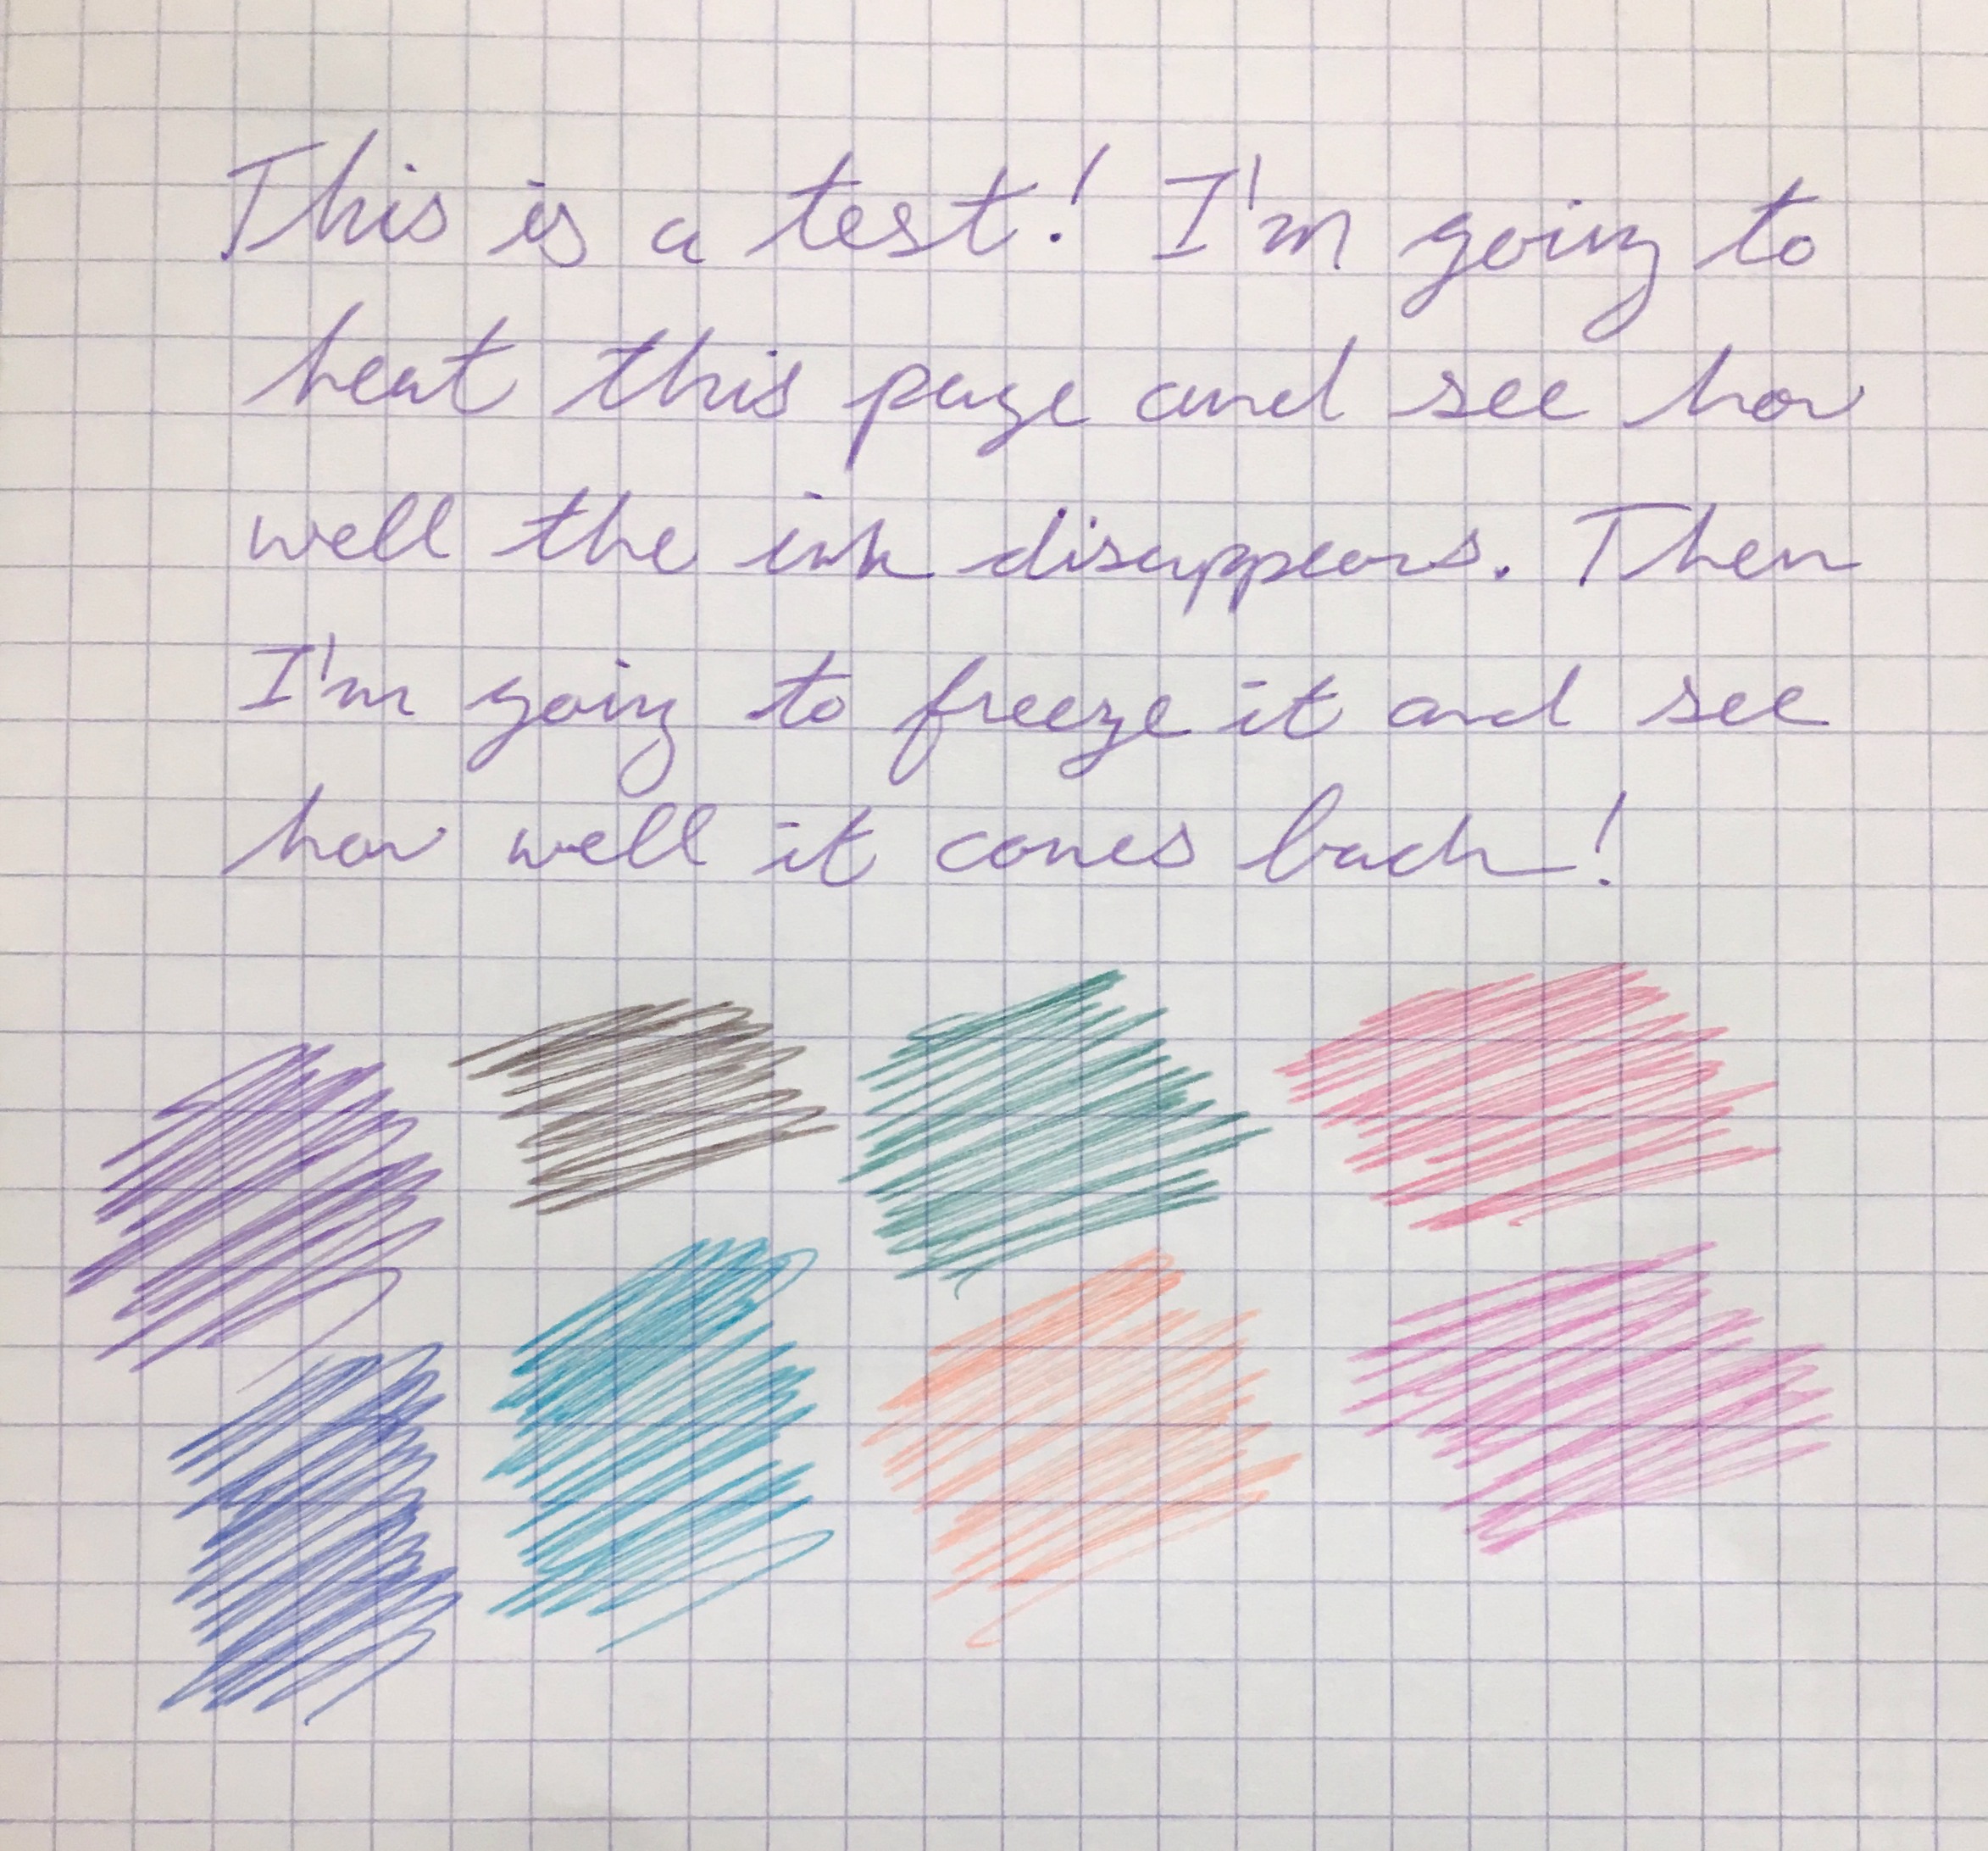 This is a test! I'm going to
heat this page and see how
well the ink disappears. Then
I'm going to freeze it and see
how well it comes back!